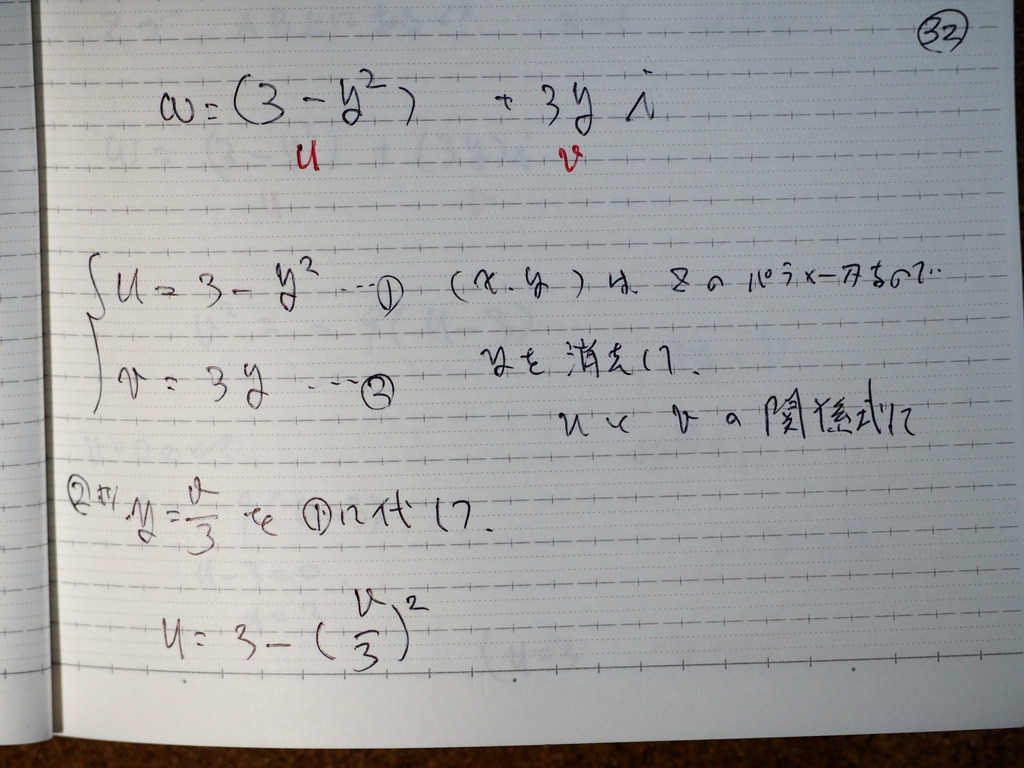 32
w = (3 - y²) + 3y i
u v
u = 3 - y² ... ① (x.y) は zの パラメータなので..
v = 3y ... ② yを 消去して.
u と v の 関係式に
②より. y = v/3 を ①に代して.
u = 3 - (v/3)²